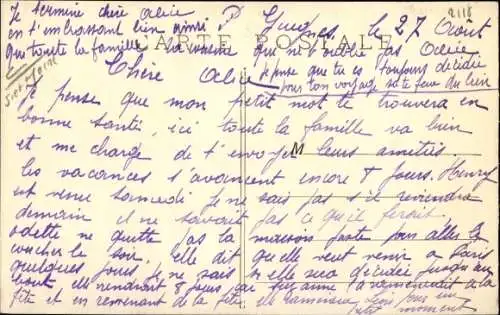 Je termine chère Alice
en t'embrassant bien ainsi
que toute la famille ta cousine
qui ne t'oublie pas Odette
CARTE POSTALE
2118
le 27 Août
Chère Alice
je pense que tu es toujours décidée
pour ton voyage sa te fera du bien
Je pense que mon petit mot te trouvera en
bonne santé, ici toute la famille va bien
et me charge de t'envoyer leurs amitiés.
M
les vacances s'avancent encore 8 jours. Henry
est venu samedi je ne sais pas s'il reviendra
demain il ne savait pas ce qu'il ferait.
Odette ne quitte pas la maison juste pour aller se
coucher le soir, elle dit qu'elle veut venir à Paris
quelques jours je ne sais si elle sera décidée jusqu'au
bout elle viendrait 8 jours
fête et en revenant de la fête, elle
moment